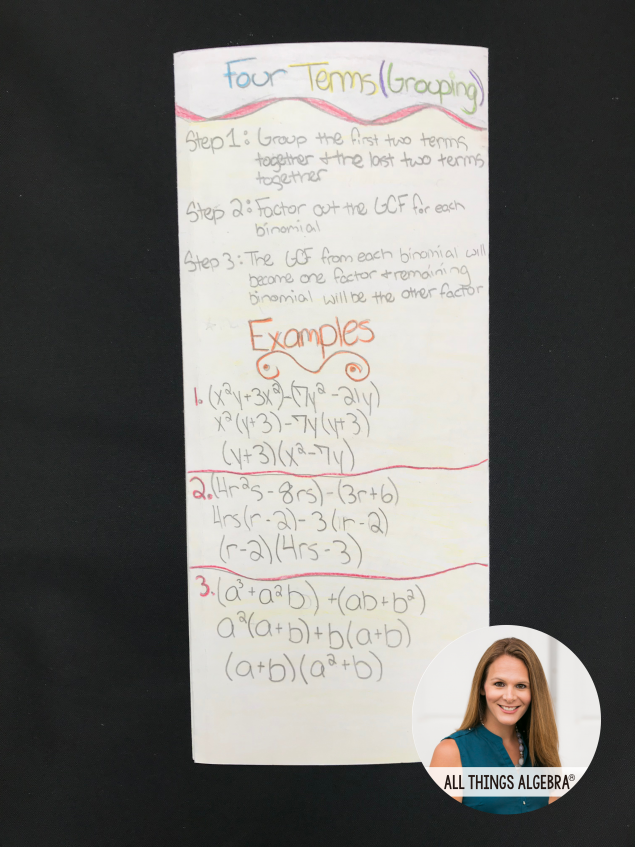 Four Terms (Grouping)
Step 1: Group the first two terms
together + the last two terms
together
Step 2: Factor out the GCF for each
binomial
Step 3: The GCF from each binomial will
become one factor + remaining
binomial will be the other factor
Examples
1. (x²y+3x²)-(7y² -21y)
x²(y+3)-7y(y+3)
(y+3)(x²-7y)
2. (4r²s - 8rs) - (3r+6)
4rs(r-2)-3(r-2)
(r-2)(4rs-3)
3. (a³+a²b) +(ab+b²)
a²(a+b)+b(a+b)
(a+b)(a²+b)
ALL THINGS ALGEBRA®